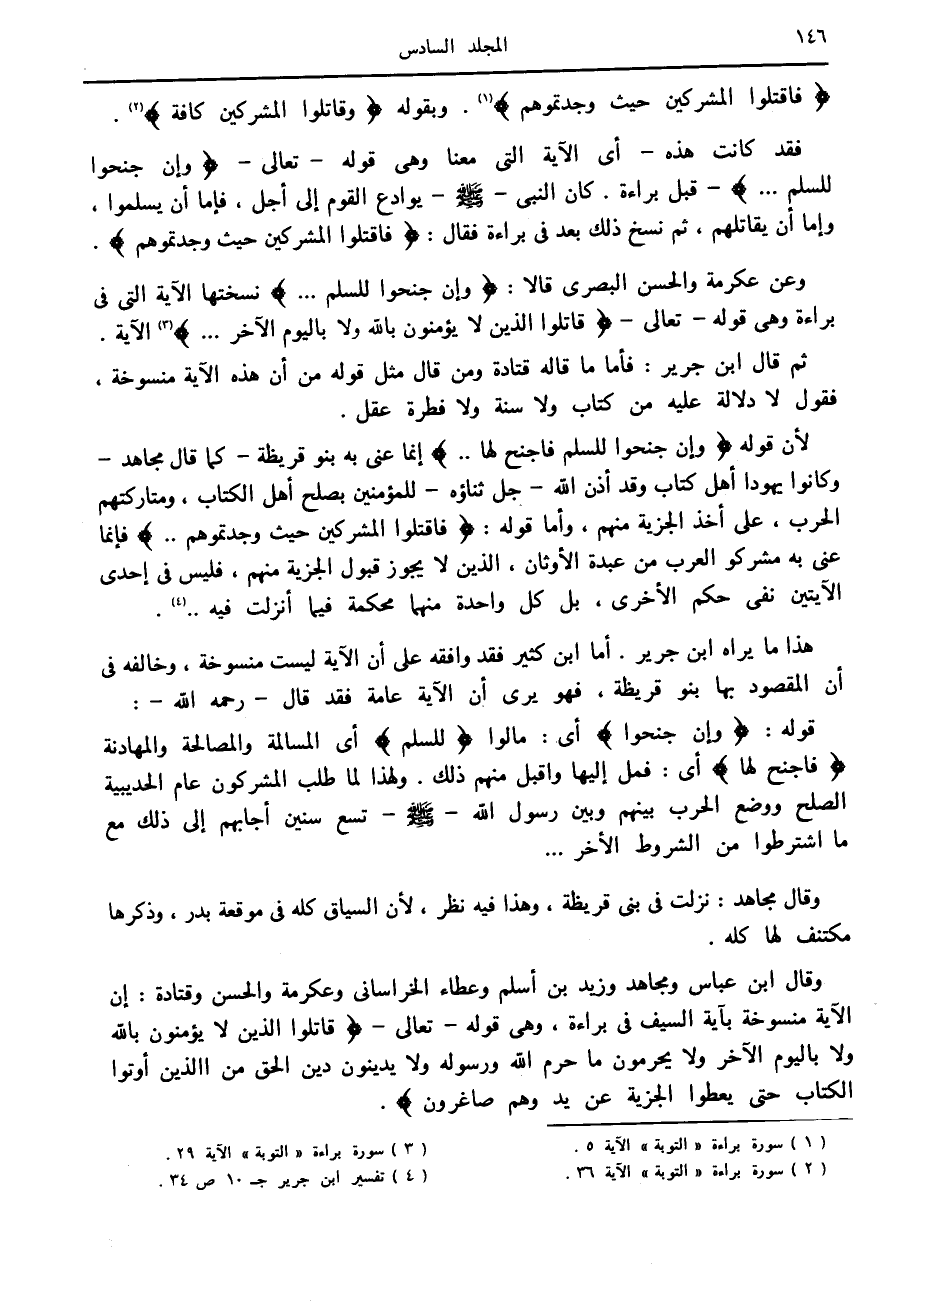 ١٤٦
المجلد السادس
﴿ فاقتلوا المشركين حيث وجدتموهم ﴾(١) . وبقوله ﴿ وقاتلوا المشركين كافة ﴾(٢) .
فقد كانت هذه – أى الآية التى معنا وهى قوله – تعالى – ﴿ وإن جنحوا
للسلم ... ﴾ – قبل براءة . كان النبى – ﷺ – يوادع القوم إلى أجل ، فإما أن يسلموا ،
وإما أن يقاتلهم ، ثم نسخ ذلك بعد فى براءة فقال : ﴿ فاقتلوا المشركين حيث وجدتموهم ﴾ .
وعن عكرمة والحسن البصرى قالا : ﴿ وإن جنحوا للسلم ... ﴾ نسختها الآية التى فى
براءة وهى قوله – تعالى – ﴿ قاتلوا الذين لا يؤمنون بالله ولا باليوم الآخر ... ﴾(٣) الآية .
ثم قال ابن جرير : فأما ما قاله قتادة ومن قال مثل قوله من أن هذه الآية منسوخة ،
فقول لا دلالة عليه من كتاب ولا سنة ولا فطرة عقل .
لأن قوله ﴿ وإن جنحوا للسلم فاجنح لها .. ﴾ إنما عنى به بنو قريظة – كما قال مجاهد –
وكانوا يهودا أهل كتاب وقد أذن الله – جل ثناؤه – للمؤمنين بصلح أهل الكتاب ، ومتاركتهم
الحرب ، على أخذ الجزية منهم ، وأما قوله : ﴿ فاقتلوا المشركين حيث وجدتموهم .. ﴾ فإنما
عنى به مشركو العرب من عبدة الأوثان ، الذين لا يجوز قبول الجزية منهم ، فليس فى إحدى
الآيتين نفى حكم الأخرى ، بل كل واحدة منهما محكمة فيما أنزلت فيه ..(٤) .
هذا ما يراه ابن جرير . أما ابن كثير فقد وافقه على أن الآية ليست منسوخة ، وخالفه فى
أن المقصود بها بنو قريظة ، فهو يرى أن الآية عامة فقد قال – رحمه الله – :
قوله : ﴿ وإن جنحوا ﴾ أى : مالوا ﴿ للسلم ﴾ أى المسالمة والمصالحة والمهادنة
﴿ فاجنح لها ﴾ أى : فمل إليها واقبل منهم ذلك . ولهذا لما طلب المشركون عام الحديبية
الصلح ووضع الحرب بينهم وبين رسول الله – ﷺ – تسع سنين أجابهم إلى ذلك مع
ما اشترطوا من الشروط الأخر ...
وقال مجاهد : نزلت فى بنى قريظة ، وهذا فيه نظر ، لأن السياق كله فى موقعة بدر ، وذكرها
مكتنف لها كله .
وقال ابن عباس ومجاهد وزيد بن أسلم وعطاء الخراسانى وعكرمة والحسن وقتادة : إن
الآية منسوخة بآية السيف فى براءة ، وهى قوله – تعالى – ﴿ قاتلوا الذين لا يؤمنون بالله
ولا باليوم الآخر ولا يحرمون ما حرم الله ورسوله ولا يدينون دين الحق من االذين أوتوا
الكتاب حتى يعطوا الجزية عن يد وهم صاغرون ﴾ .
( ١ ) سورة براءة « التوبة » الآية ٥ .
( ٢ ) سورة براءة « التوبة » الآية ٣٦ .
( ٣ ) سورة براءة « التوبة » الآية ٢٩ .
( ٤ ) تفسير ابن جرير جـ ١٠ ص ٣٤ .